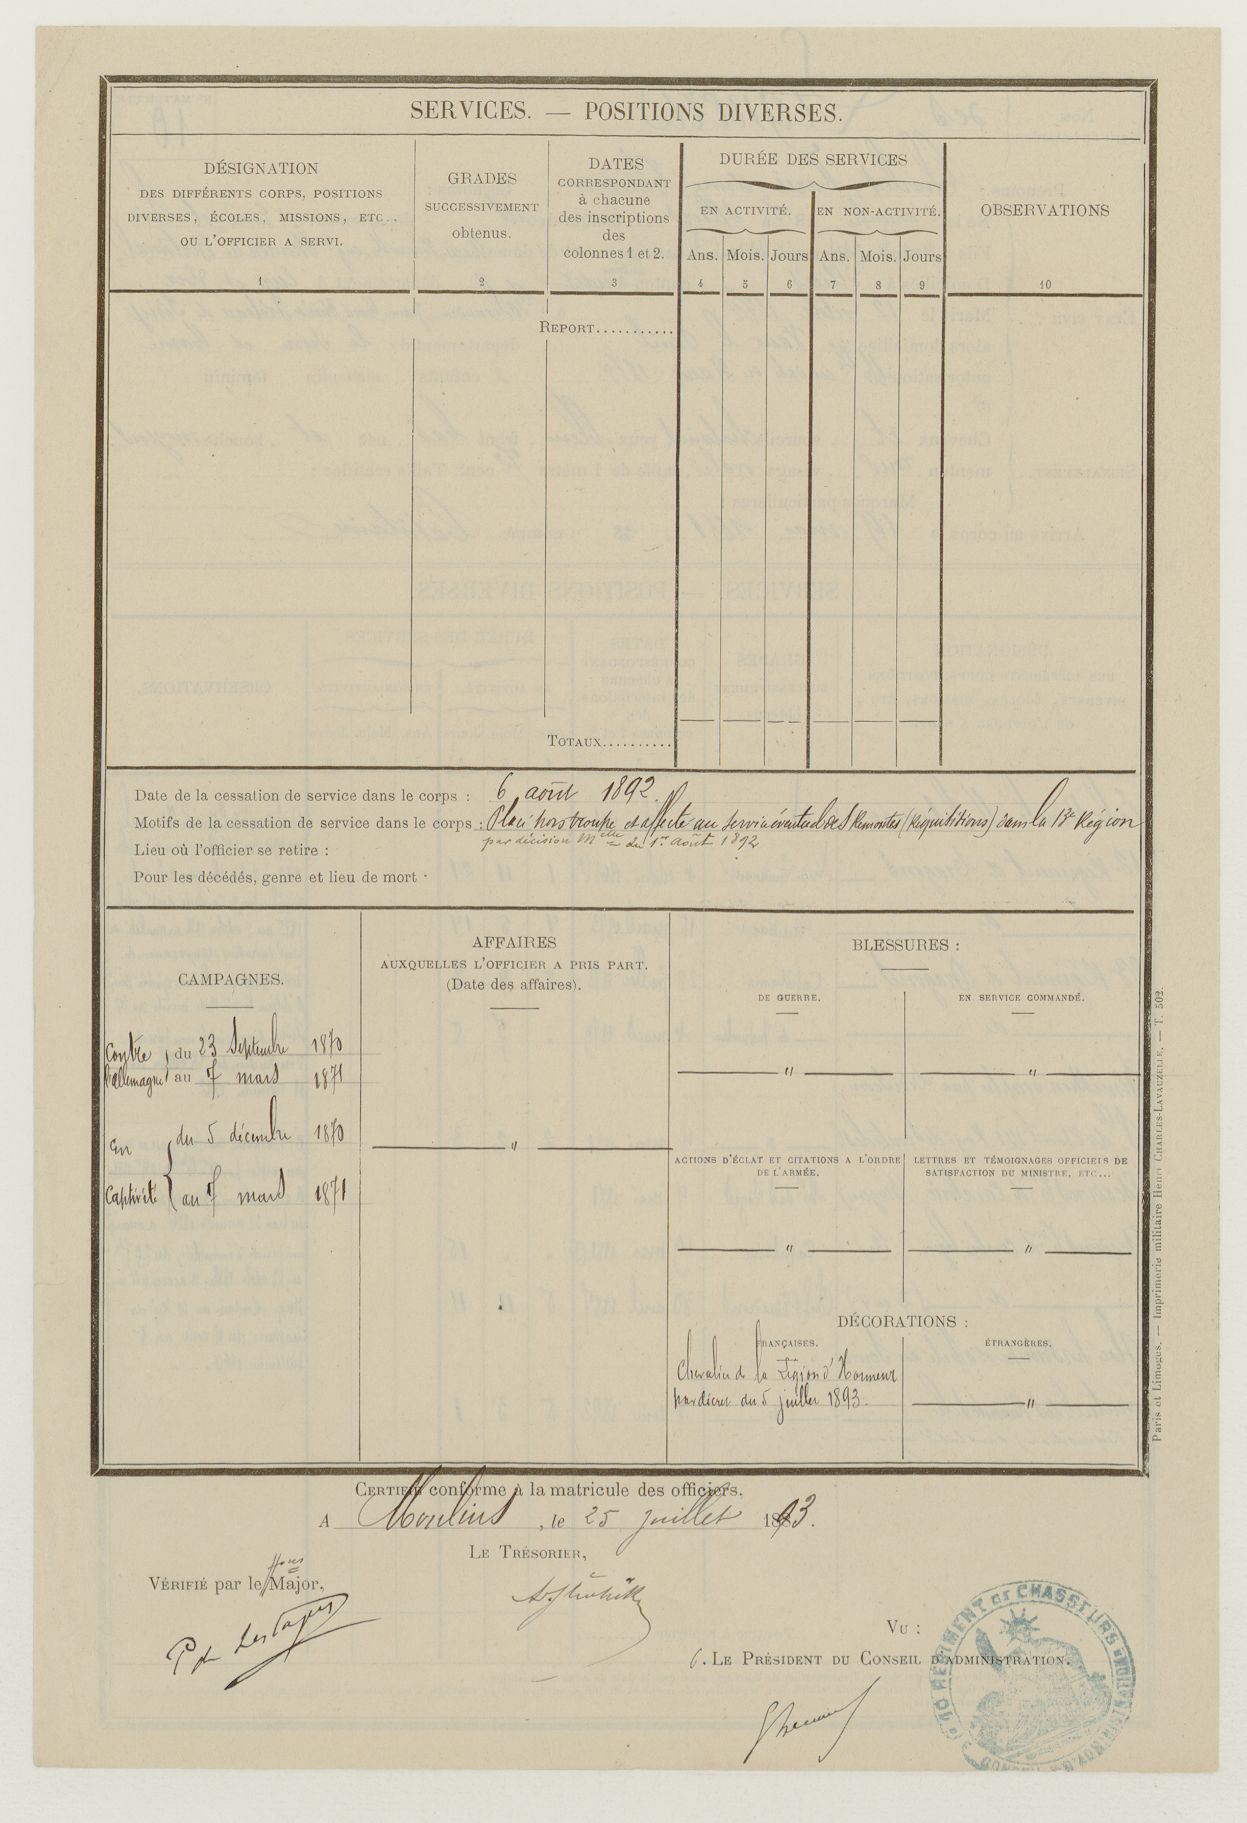 SERVICES. — POSITIONS DIVERSES.
DÉSIGNATION
DES DIFFÉRENTS CORPS, POSITIONS
DIVERSES, ÉCOLES, MISSIONS, ETC..
OU L'OFFICIER A SERVI.
1
GRADES
SUCCESSIVEMENT
obtenus.
2
DATES
CORRESPONDANT
à chacune
des inscriptions
des
colonnes 1 et 2.
3
DURÉE DES SERVICES
EN ACTIVITÉ.
EN NON-ACTIVITÉ.
Ans. Mois. Jours Ans. Mois. Jours
4 5 6 7 8 9
OBSERVATIONS
10
REPORT...........
TOTAUX..........
Date de la cessation de service dans le corps : 6 août 1892.
Motifs de la cessation de service dans le corps : Placé hors troupe et affecté au service éventuel des Remontes (Réquisitions) dans la 13e Région
par décision Mlle du 1er août 1892
Lieu où l'officier se retire :
Pour les décédés, genre et lieu de mort ·
CAMPAGNES.
Contre l'allemagne
du 23 Septembre 1870
au 7 mars 1871
en Captivité
du 5 décembre 1870
au 7 mars 1871
AFFAIRES
AUXQUELLES L'OFFICIER A PRIS PART.
(Date des affaires).
"
BLESSURES :
DE GUERRE.
"
EN SERVICE COMMANDÉ.
"
ACTIONS D'ÉCLAT ET CITATIONS A L'ORDRE
DE L'ARMÉE.
"
LETTRES ET TÉMOIGNAGES OFFICIELS DE
SATISFACTION DU MINISTRE, ETC...
"
DÉCORATIONS :
FRANÇAISES.
Chevalier de la Légion d'Honneur
par décret du 5 juillet 1893.
ÉTRANGÈRES.
"
Paris et Limoges. — Imprimerie militaire Henri CHARLES-LAVAUZELLE. — T. 502.
CERTIFIÉ conforme à la matricule des officiers.
A Moulins, le 25 juillet 1893.
LE TRÉSORIER,
VÉRIFIÉ par le Major,
VU :
LE PRÉSIDENT DU CONSEIL D'ADMINISTRATION.
10 REGIMENT DE CHASSEURS
CONSEIL D'ADMINISTRATION